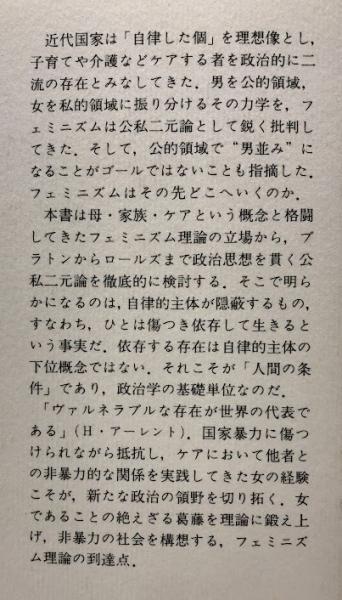 近代国家は「自律した個」を理想像とし，
子育てや介護などケアする者を政治的に二
流の存在とみなしてきた．男を公的領域，
女を私的領域に振り分けるその力学を，フ
ェミニズムは公私二元論として鋭く批判し
てきた．そして，公的領域で“男並み”に
なることがゴールではないことも指摘した．
フェミニズムはその先どこへいくのか．
　本書は母・家族・ケアという概念と格闘
してきたフェミニズム理論の立場から，プ
ラトンからロールズまで政治思想を貫く公
私二元論を徹底的に検討する．そこで明ら
かになるのは，自律的主体が隠蔽するもの，
すなわち，ひとは傷つき依存して生きると
いう事実だ．依存する存在は自律的主体の
下位概念ではない．それこそが「人間の条
件」であり，政治学の基礎単位なのだ．
　「ヴァルネラブルな存在が世界の代表で
ある」（H・アーレント）．国家暴力に傷つ
けられながら抵抗し，ケアにおいて他者と
の非暴力的な関係を実践してきた女の経験
こそが，新たな政治の領野を切り拓く．女
であることの絶えざる葛藤を理論に鍛え上
げ，非暴力の社会を構想する，フェミニズ
ム理論の到達点．